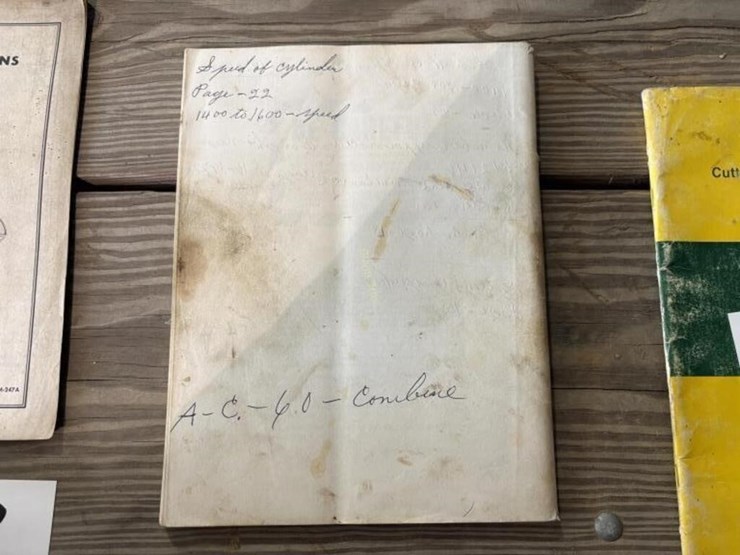 NS
4-347A
Speed of cylinder
Page - 22
1400 to 1600 - speed
A-C. - 60 - Combine
Cutt